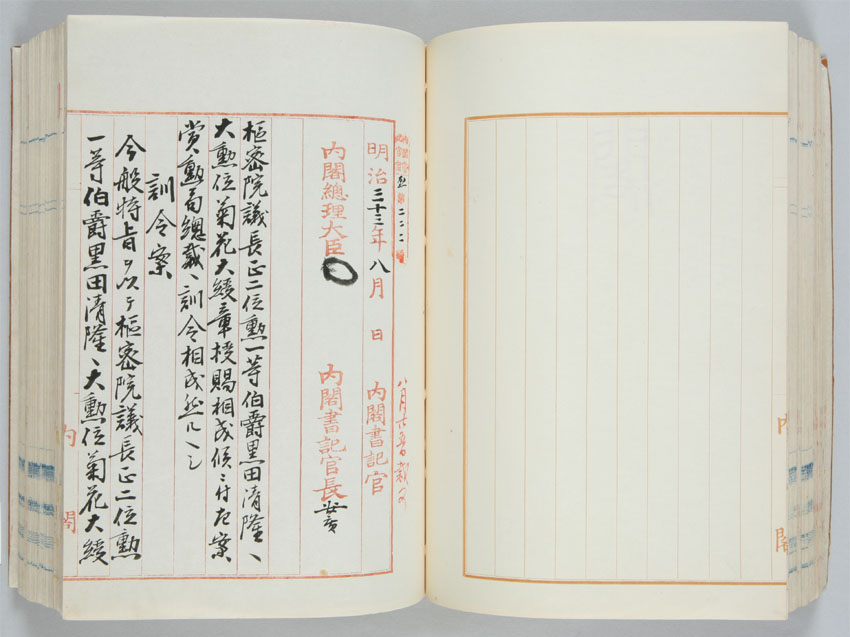 八月
明治三十三年八月 日 内閣書記官
内閣總理大臣 内閣書記官長
樞密院議長正二位勲一等伯爵黒田清隆ヘ
大勲位菊花大綬章授賜相成候ニ付左案
賞勲局總裁ヘ訓令相成然ルヘシ
訓令案
今般特旨ヲ以テ樞密院議長正二位勲
一等伯爵黒田清隆ヘ大勲位菊花大綬
内閣
内閣